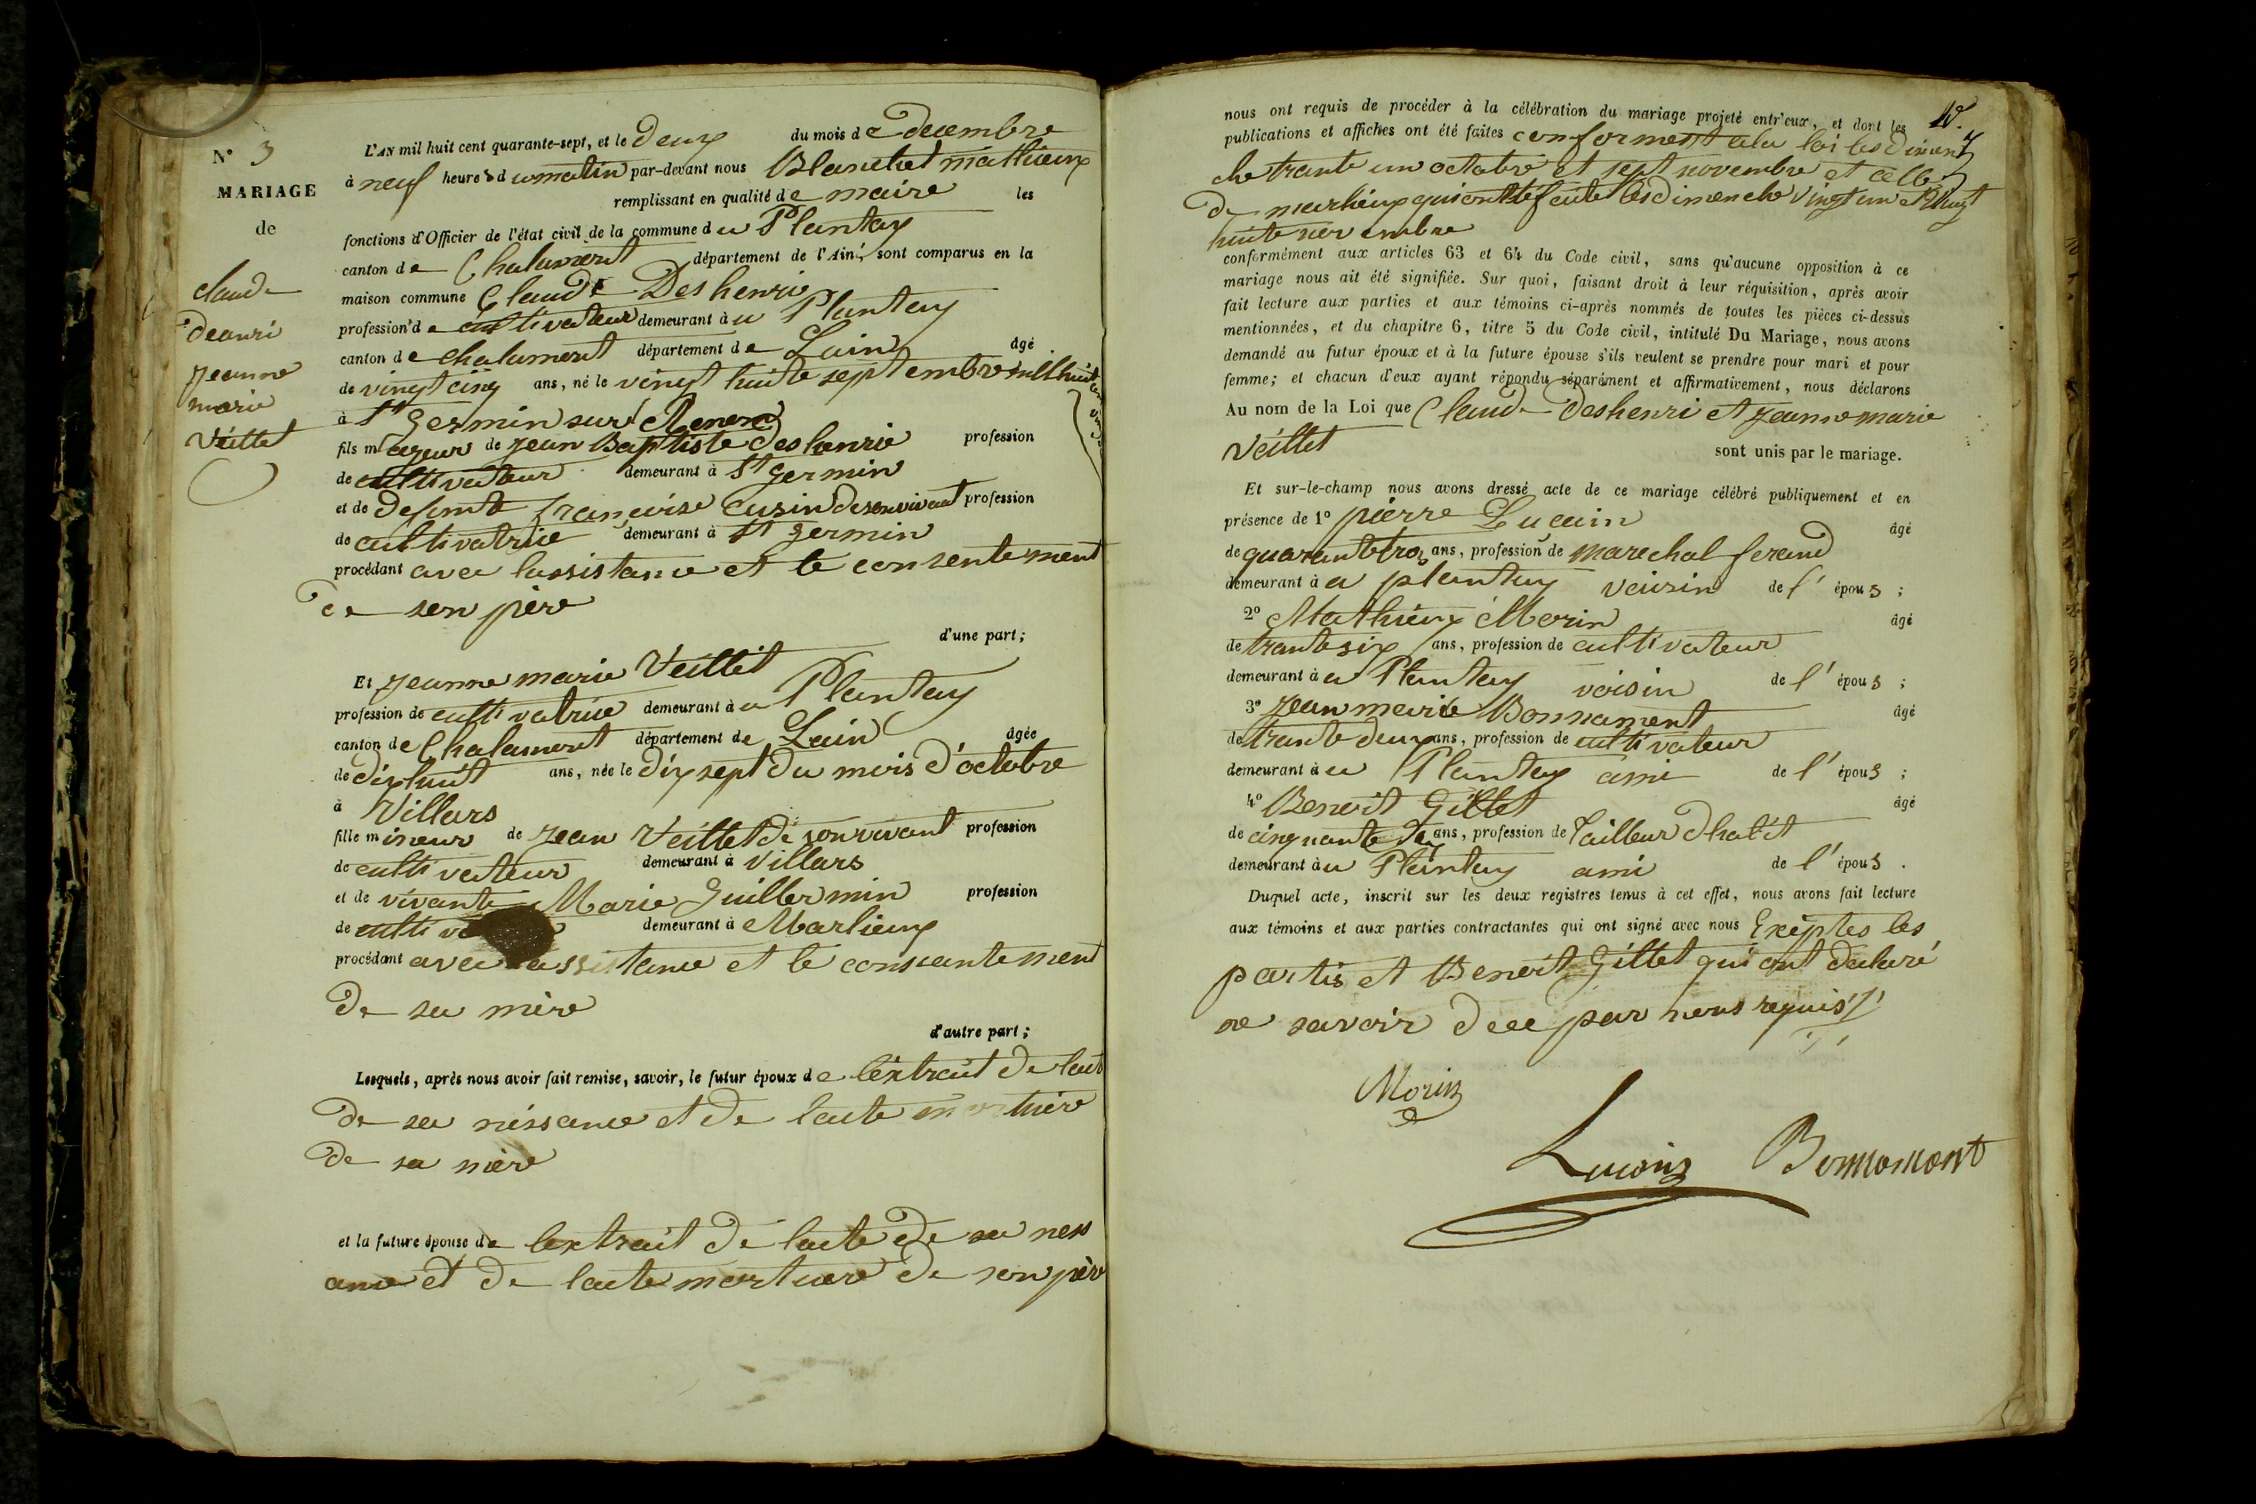 N° 3
MARIAGE
de
Claude
Deanri
Jeanne
marie
Veittet
L'AN mil huit cent quarante-sept, et le Deux du mois de Decembre
à neuf heures du matin par-devant nous Blanchet mathieux
remplissant en qualité de maire les
fonctions d'Officier de l'état civil de la commune du Plantay
canton de Chalamont département de l'Ain, sont comparus en la
maison commune Claude Deshenri
profession de cultivateur demeurant au Plantay
canton de chalamont département de Lain âgé
de vingt cinq ans, né le vingt huite septembre mil huit
à St germin sur Renon
fils mageur de jean Baptiste deshenrie profession
de cultivateur demeurant à St germin
et de defunte francoise Cusin de son vivant profession
de cultivatrice demeurant à St germin
procédant avec lassistance et le consentement
de son père
d'une part;
Et jeanne marie Veittet
profession de cultivatrice demeurant au Plantay
canton de Chalamont département de Lain âgée
de dixhuit ans, née le dix sept du mois d'octobre
à Villars
fille mineur de jean Veittet de son vivant profession
de cultivateur demeurant à Villars
et de vivante Marie Guillermin profession
de demeurant à Marlieux
procédant avec assistance et le consantement
De sa mère
d'autre part;
Lesquels, après nous avoir fait remise, savoir, le futur époux de lextrait de lact
de sa néissance et de lacte mortuère
de sa mère
et la future épouse de lextrait de lacte de sa ness
ance et de lacte mortuere de son père
nous ont requis de procéder à la célébration du mariage projeté entr'eux, et dont les
publications et affiches ont été faites conforment ala loi les diman
che trante un octobre et sept novembre et celle
de marlieux qui ont été faite les dimenche vingt un et vingt
huite novembre
conformément aux articles 63 et 64 du Code civil, sans qu'aucune opposition à ce
mariage nous ait été signifiée. Sur quoi, faisant droit à leur réquisition, après avoir
fait lecture aux parties et aux témoins ci-après nommés de toutes les pièces ci-dessus
mentionnées, et du chapitre 6, titre 5 du Code civil, intitulé Du Mariage, nous avons
demandé au futur époux et à la future épouse s'ils veulent se prendre pour mari et pour
femme; et chacun d'eux ayant répondu séparément et affirmativement, nous déclarons
Au nom de la Loi que Claude deshenri et jeanne marie
Veittet
sont unis par le mariage.
Et sur-le-champ nous avons dressé acte de ce mariage célébré publiquement et en
présence de 1° pierre Lucain âgé
de quarante trois ans, profession de marechal ferand
demeurant au plantay voisin de l'épous;
2° Mathieux Morin âgé
de trante six ans, profession de cultivateur
demeurant au Plantay voisin de l'épous;
3° jean marie Bonnament âgé
de trante deux ans, profession de cultivateur
demeurant au Plantay ami de l'épous;
4° Benoit Gittet âgé
de cinquante ans, profession de Tailleur dhabit
demeurant au Plantay ami de l'épous.
Duquel acte, inscrit sur les deux registres tenus à cet effet, nous avons fait lecture
aux témoins et aux parties contractantes qui ont signé avec nous Exéptes les
partis et Benoit Gittet qui ont déclaré
ne savoir dee par nous requis
Morin
Lucain Bonnamont